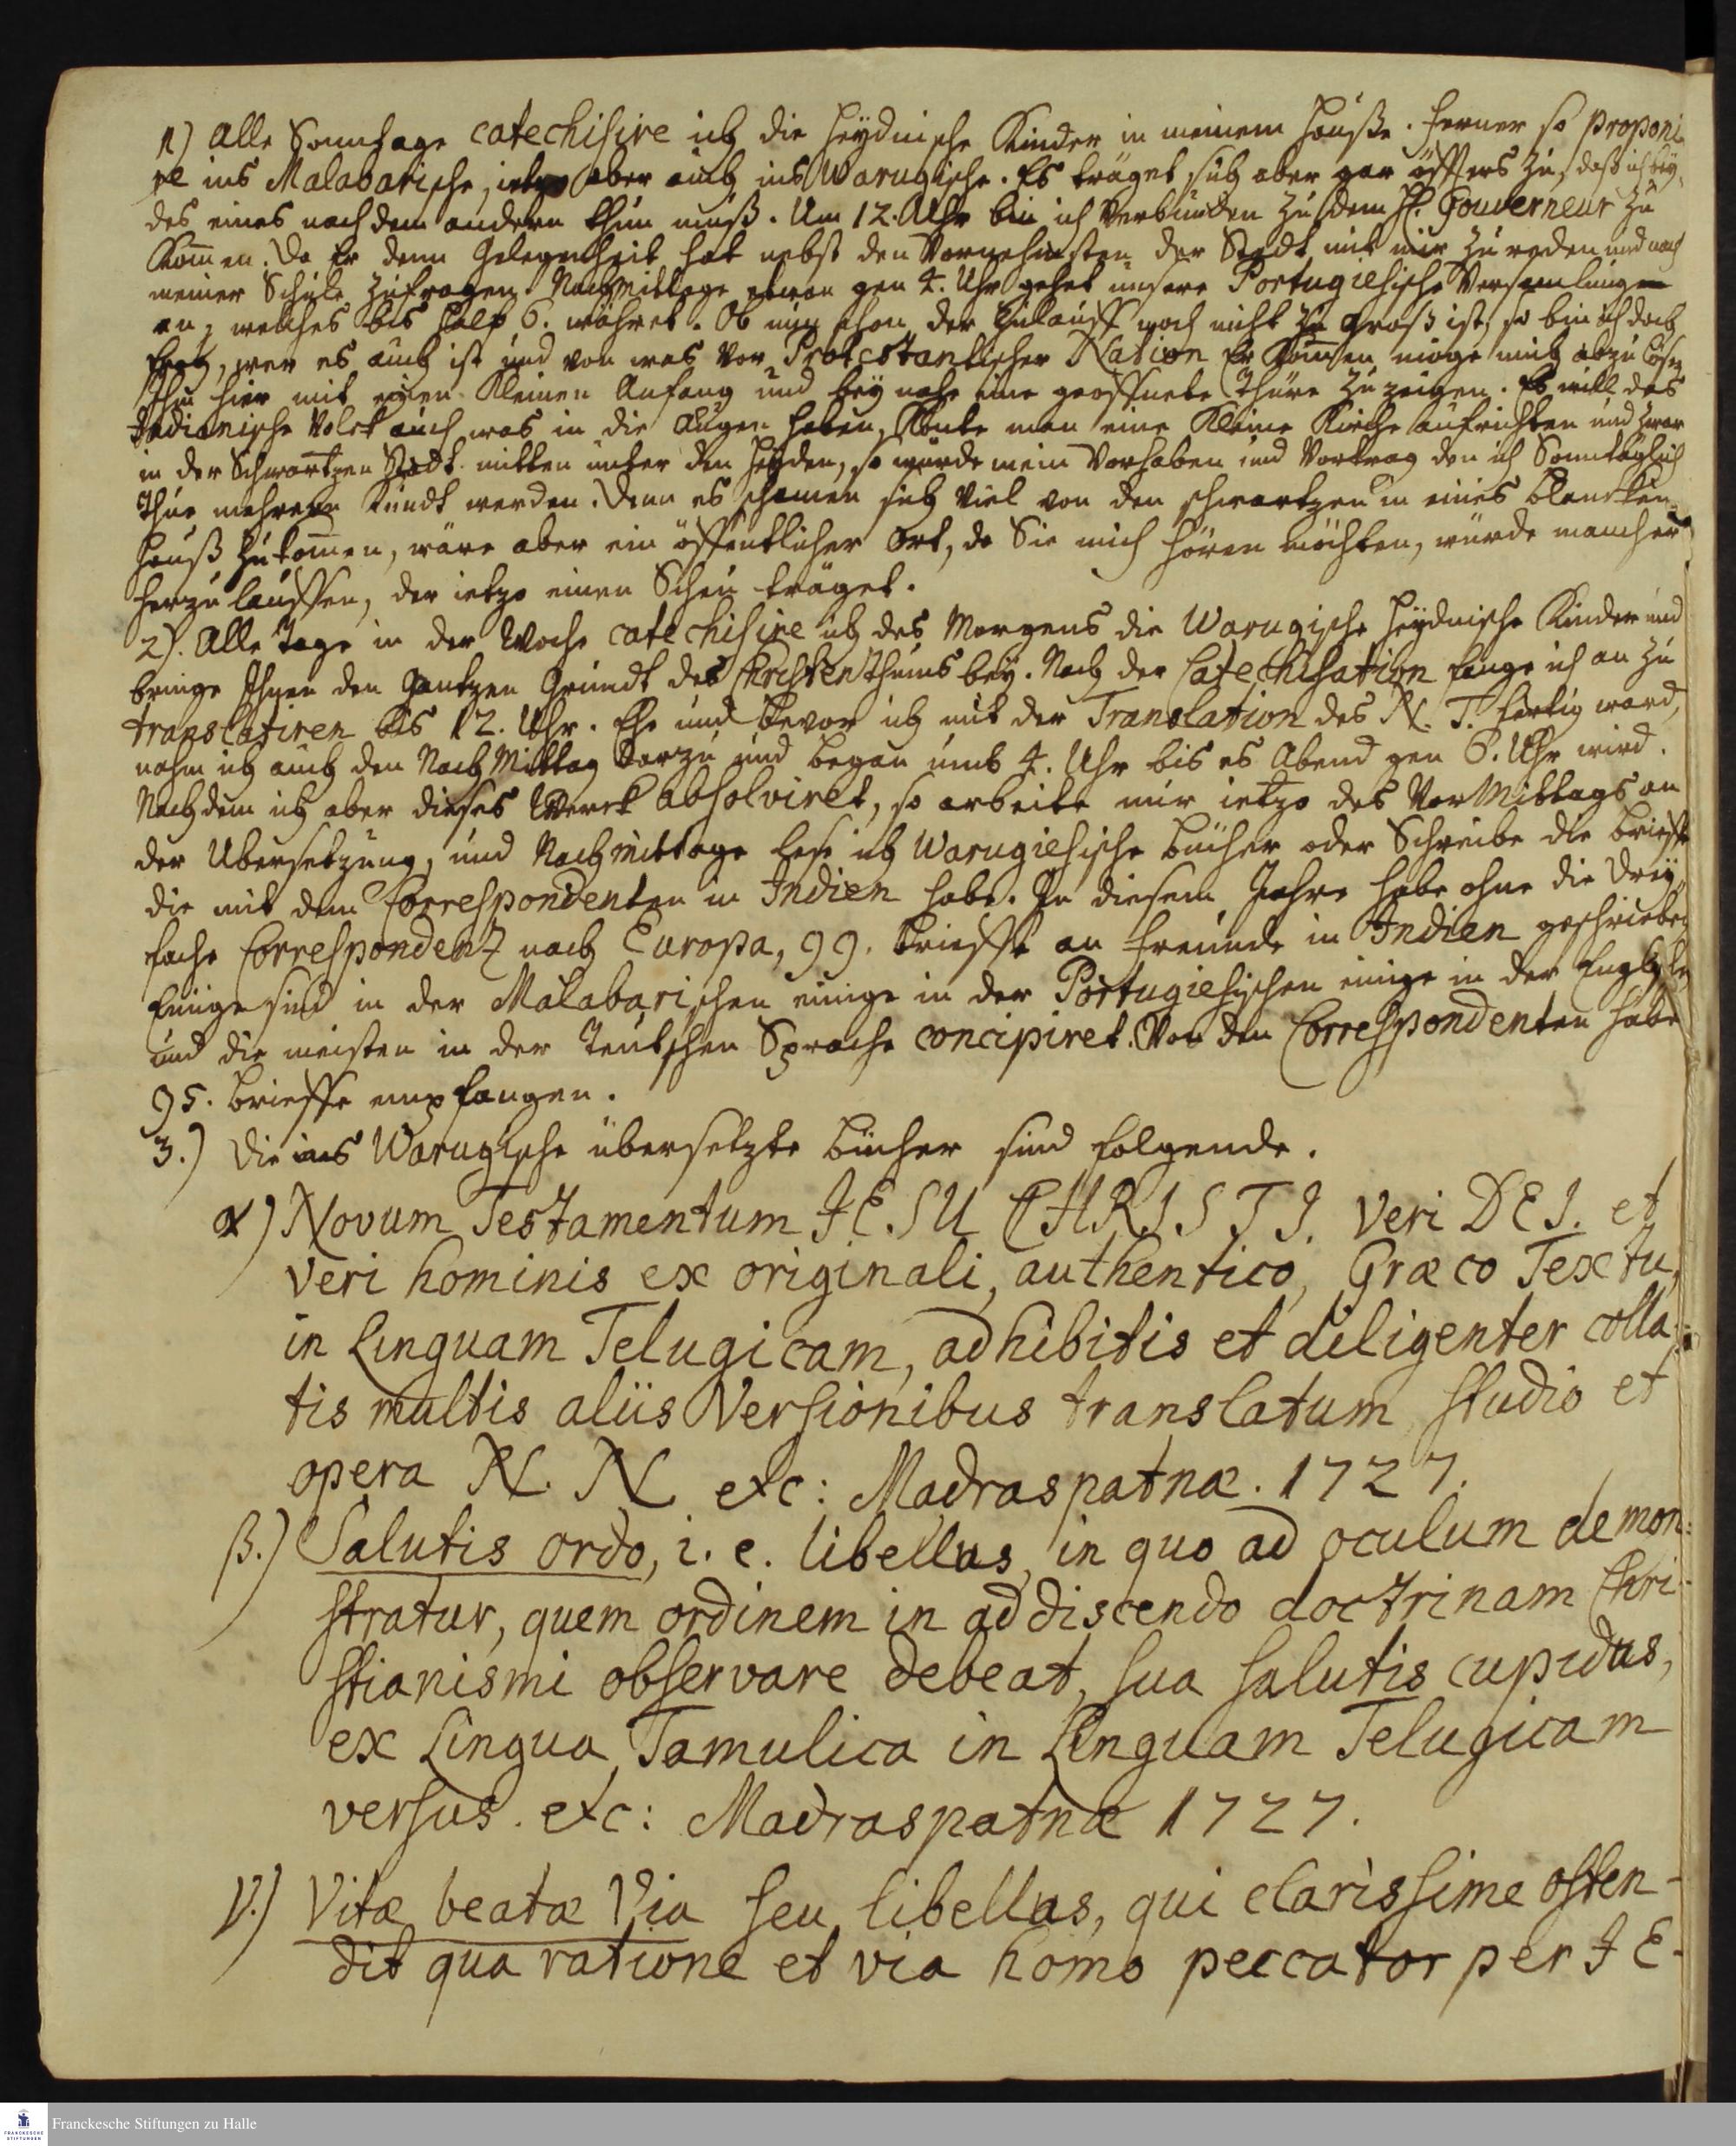 1) Alle Sonntage catechisire ich die Heydnische Kinder in meinem Hauße. Ferner so proponi
re ins Malabarische, ietzo aber auch ins Warugische. Es träget sich aber gar öffters zu, daß ich bey¬
des eines nach dem andern thun muß. Um 12. Uhr bin ich verbunden zu dem H. Gouverneur zu
kommen. Da Er denn Gelegenheit hat nebst den Vornehmsten der Stadt mit mir zu reden und nach
meiner Schule zufragen. Nachmittage etwan gen 4. Uhr gehet unsere Portugiesische Versamlungen
an, welches bis halb 6. währet. Ob nun schon der Zulauff noch nicht zu groß ist, so bin ich doch
froh, wer es auch ist und von was vor Protestantischer Nation Er kommen möge mich abzulösen
Ihm hier mit einen kleinen Anfang und bey nahe eine geöffnete Thüre zu zeigen. Es will das
Indianische Volck auch was in die Augen haben, könte man eine kleine Kirche aufrichten und zwar
in der Schwartzen Stadt mitten unter den Heyden, so würde mein Vorhaben und Vortrag den ich Sonntäglich
thue mehrern kundt werden. Denn es schämen sich viel von den schwartzen in eines Blancken
Hauß zukommen, wäre aber ein öffentlicher Ort, da Sie mich hören möchten, würde mancher
herzu lauffen, der ietzo einen Scheu träget.
2). Alle Tage in der Woche catechisire ich des Morgens die Warugische Heydnische Kinder und
bringe Ihnen den gantzen Grundt des Christenthums bey. Nach der Catechisation fange ich an zu
translatiren bis 12. Uhr. Ehe und bevor ich mit der Translation des N. T. fertig ward,
nahm ich auch den Nach Mittag darzu und began umb 4. Uhr bis es Abend gen 6. Uhr wird.
Nachdem ich aber dieses Werck absolviret, so arbeite nur ietzo des Vor Mittags an
der Ubersetzung, und Nachmittage lese ich Warugiesische Bücher oder Schreibe die Brieffe
die mit dem Correspondenten in Indien habe. In diesem Jahre habe ohne die drey¬
fache Correspondenz nach Europa, 99. Brieffe an Freunde in Indien geschrieben
Einige sind in der Malabarischen einige in der Portugiesischen einige in der Englische
und die meisten in der Teutschen Sprache concipiret. Von den Correspondenten habe
95. Brieffe empfangen.
3.) Die ins Warugische übersetzte Bücher sind folgende.
α) Novum Testamentum JESU CHRISTI. veri DEI. et
veri hominis ex originali, authentico, Græco Textu,
in Linguam Telugicam, adhibitis et diligenter colla-
tis multis aliis Versionibus translatum studio et
opera N. N. etc: Madraspatnæ. 1727.
β.) Salutis ordo, i. e. libellus, in quo ad oculum demon:
stratur, quem ordinem in addiscendo doctrinam Chri-
stianismi observare debeat, sua salutis cupidus,
ex Lingua Tamulica in Linguam Telugicam
versus. etc: Madraspatnæ 1727.
γ.) Vitæ beatæ Via seu libellus, qui clarissime osten-
dit qua ratione et via homo peccator per JE-
Franckesche Stiftungen zu Halle
FRANCKESCHE
STIFTUNGEN